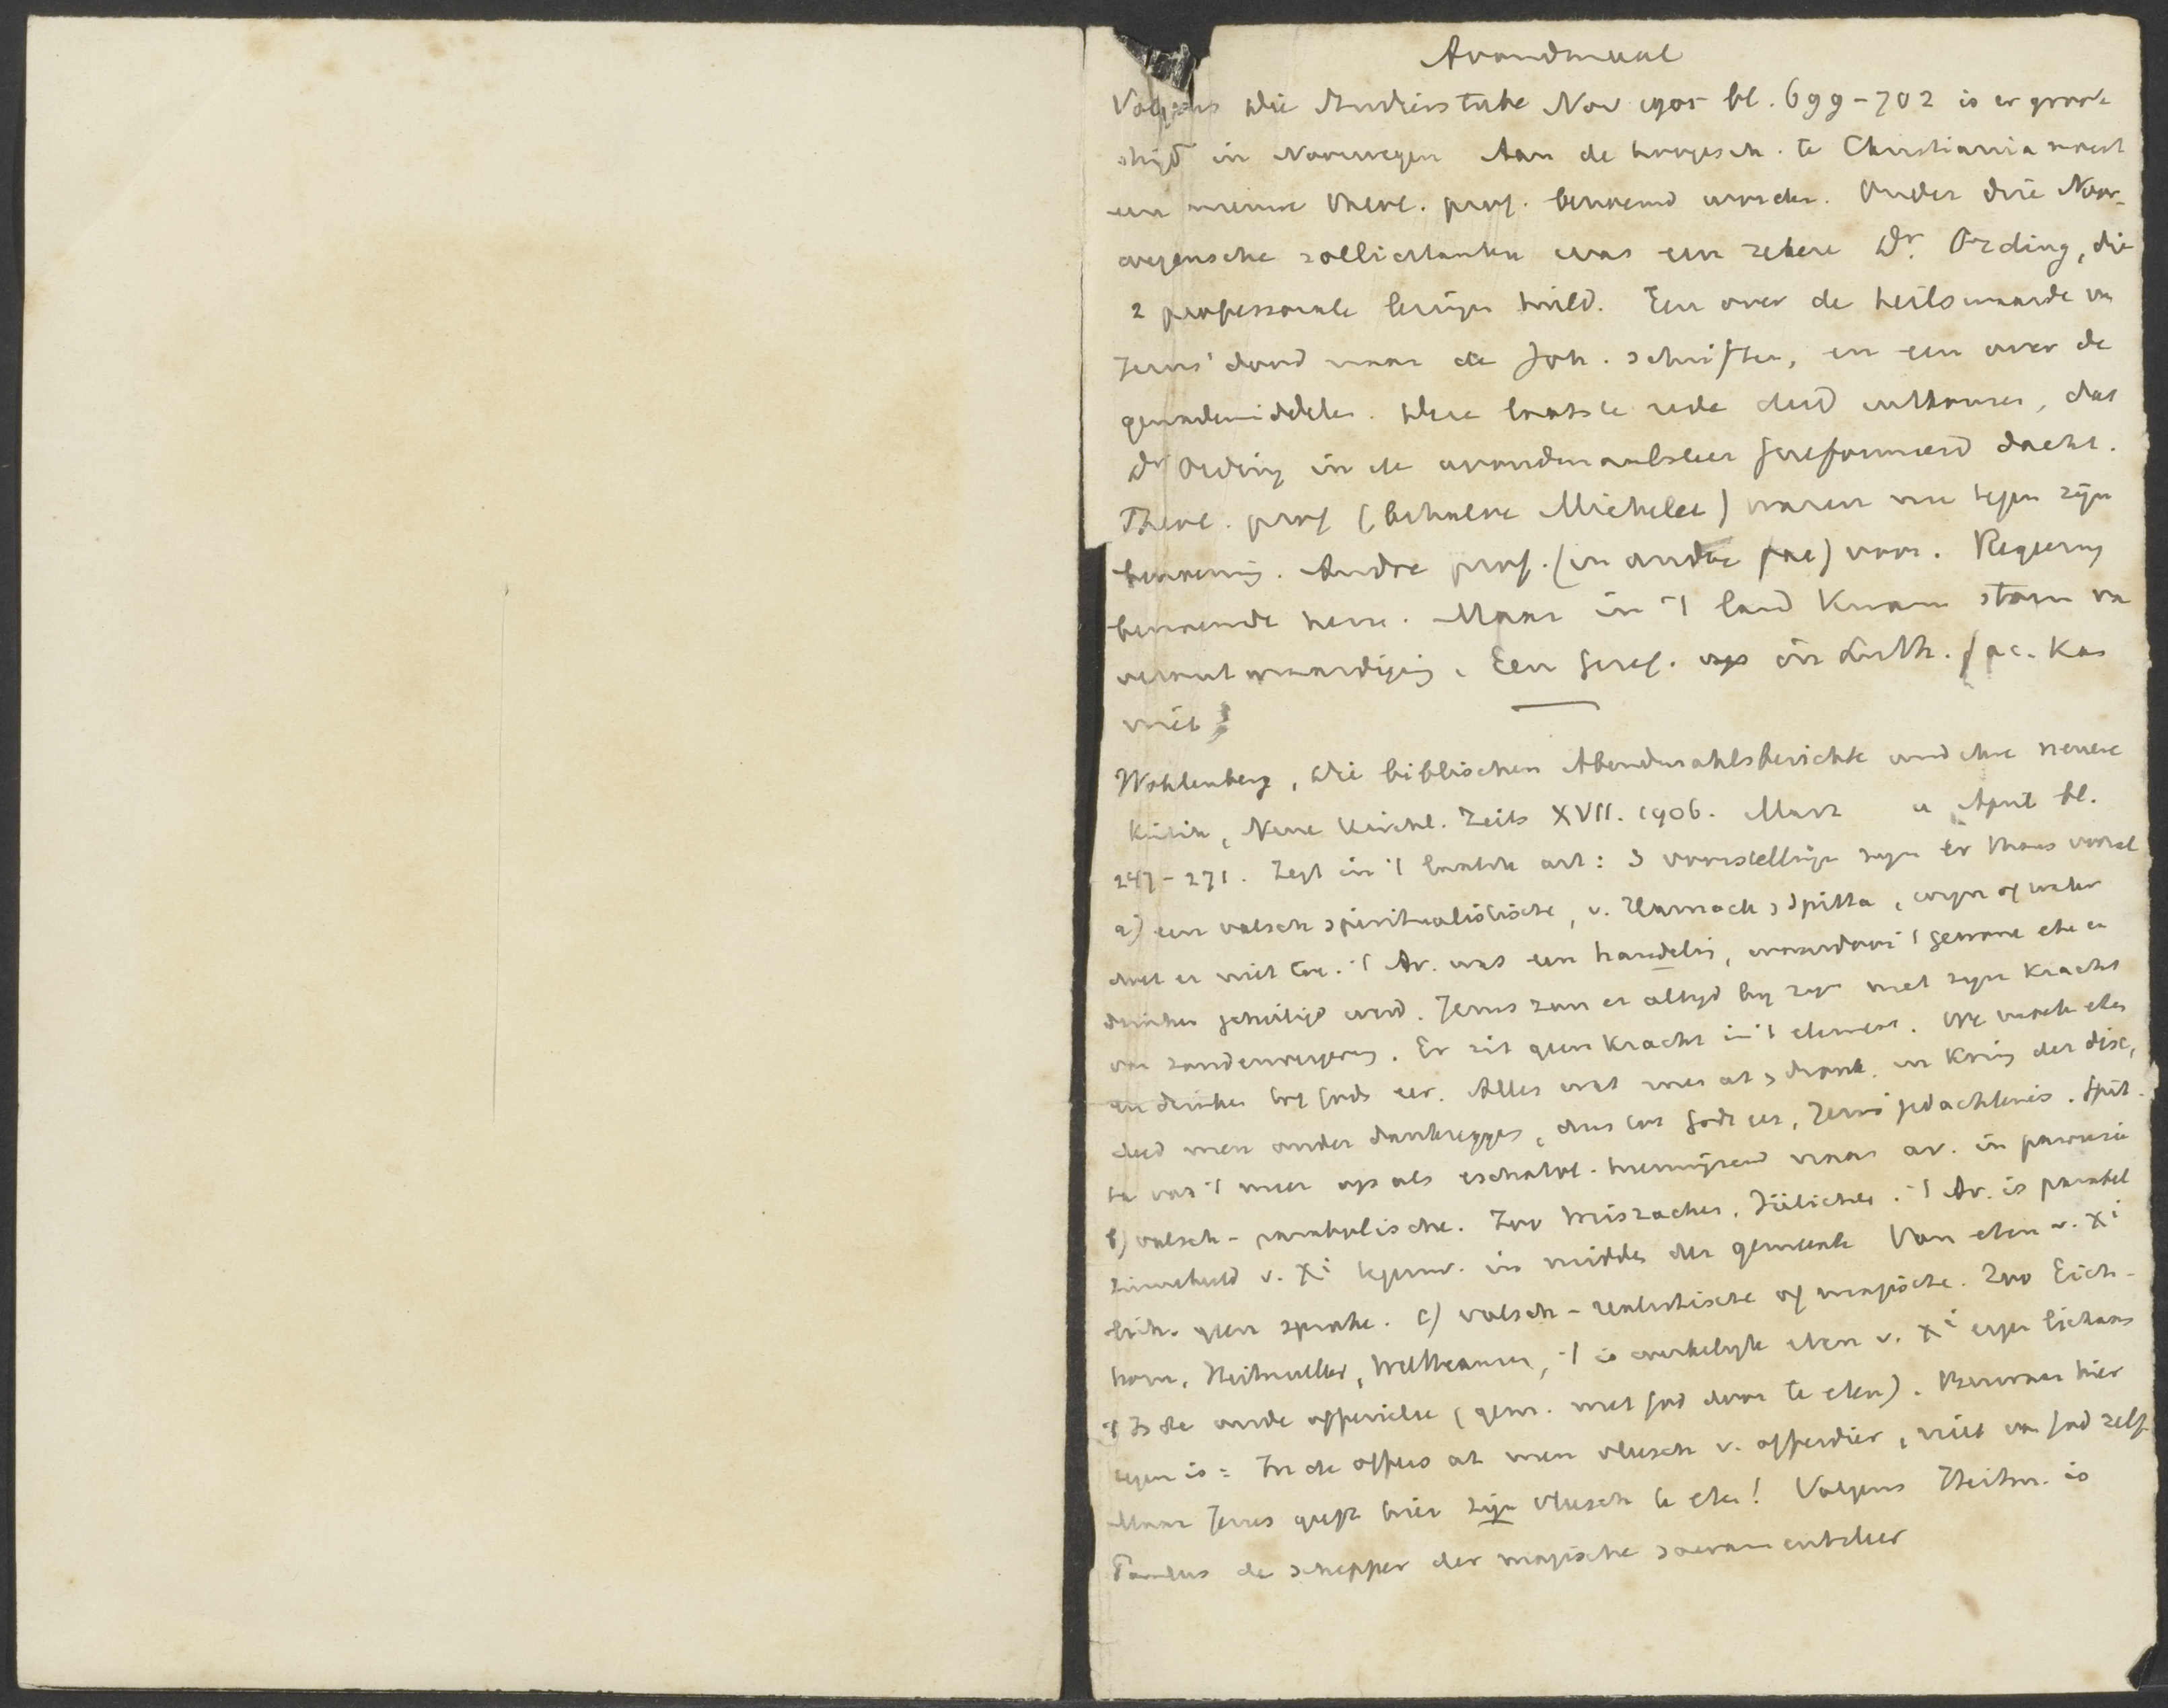 Avondmaal
Volgens Die Studierstube Nov 1905 bl. 699-702 is er groote
strijd in Noorwegen Aan de hoogesch. te Christiania moest
een nieuwe theol. prof. benoemd worden. Onder drie Noor-
weegensche sollicitanten was een zekere Dr. Ording, die
2 professorale lezingen hield. Een over de heilswaarde van
Jezus' dood naar de Joh. schriften, en een over de
genademiddelen. Deze laatste rede deed uitkomen, dat
Dr Ording in de avondmaalsleer Gereformeerd dacht.
Theol. prof (behalve Michelet) waren nu tegen zijn
benoeming. Andre prof. (in andre fac) voor. Regeering
benoemde hem. Maar in 't land kwam storm van
verontwaardiging. Een Geref. in Luth. fac. kan
niet!
Wohlenberg, Die biblischen Abendmahlsberichte und ihre neuere
Kritik, Neue Kirchl. Zeits XVII. 1906. Marz u April bl.
247-271. Zegt in 't laatste art: 3 voorstellingen zijn er thans vooral
a) een valsch spiritualistische, v. Harnack, Spitta, wijn of water
doet er niet toe. 't Av. was een handeling, waardoor 't gewone eten en
drinken geheiligd werd. Jezus zou er altijd bij zijn met zijn kracht
van zondenvergeving. Er zit geen kracht in 't element. We moeten eten
en drinken tot Gods eer. Alles wat men at, dronk, in kring der disc,
deed men onder dankzeggen, dus tot Gods eer, Jezus' gedachtenis. Spit-
ta vat 't meer op als eschatol. heenwijzend naar av. in parousie
b) valsch-parabolische. Zoo Weiszacher, Jülicher. 't Av. is parabel
zinnebeeld v. Xi tegenw. in midden der gemeente Van eten v. Xi
lich. geen sprake. c) valsch-realistische of magische. Zoo Eich-
horn, Heitmuller, Wellhausen, 't is werkelijk eten v. Xi eigen lichaam
't Is de oude offeridee (gem. met God door te eten). Bezwaar hier
tegen is: In de offers at men vleesch v. offerdier, niet van God zelf
Maar Jezus geeft hier zijn vleesch te eten! Volgens Heitm. is
Paulus de schepper der magische sacramentsleer